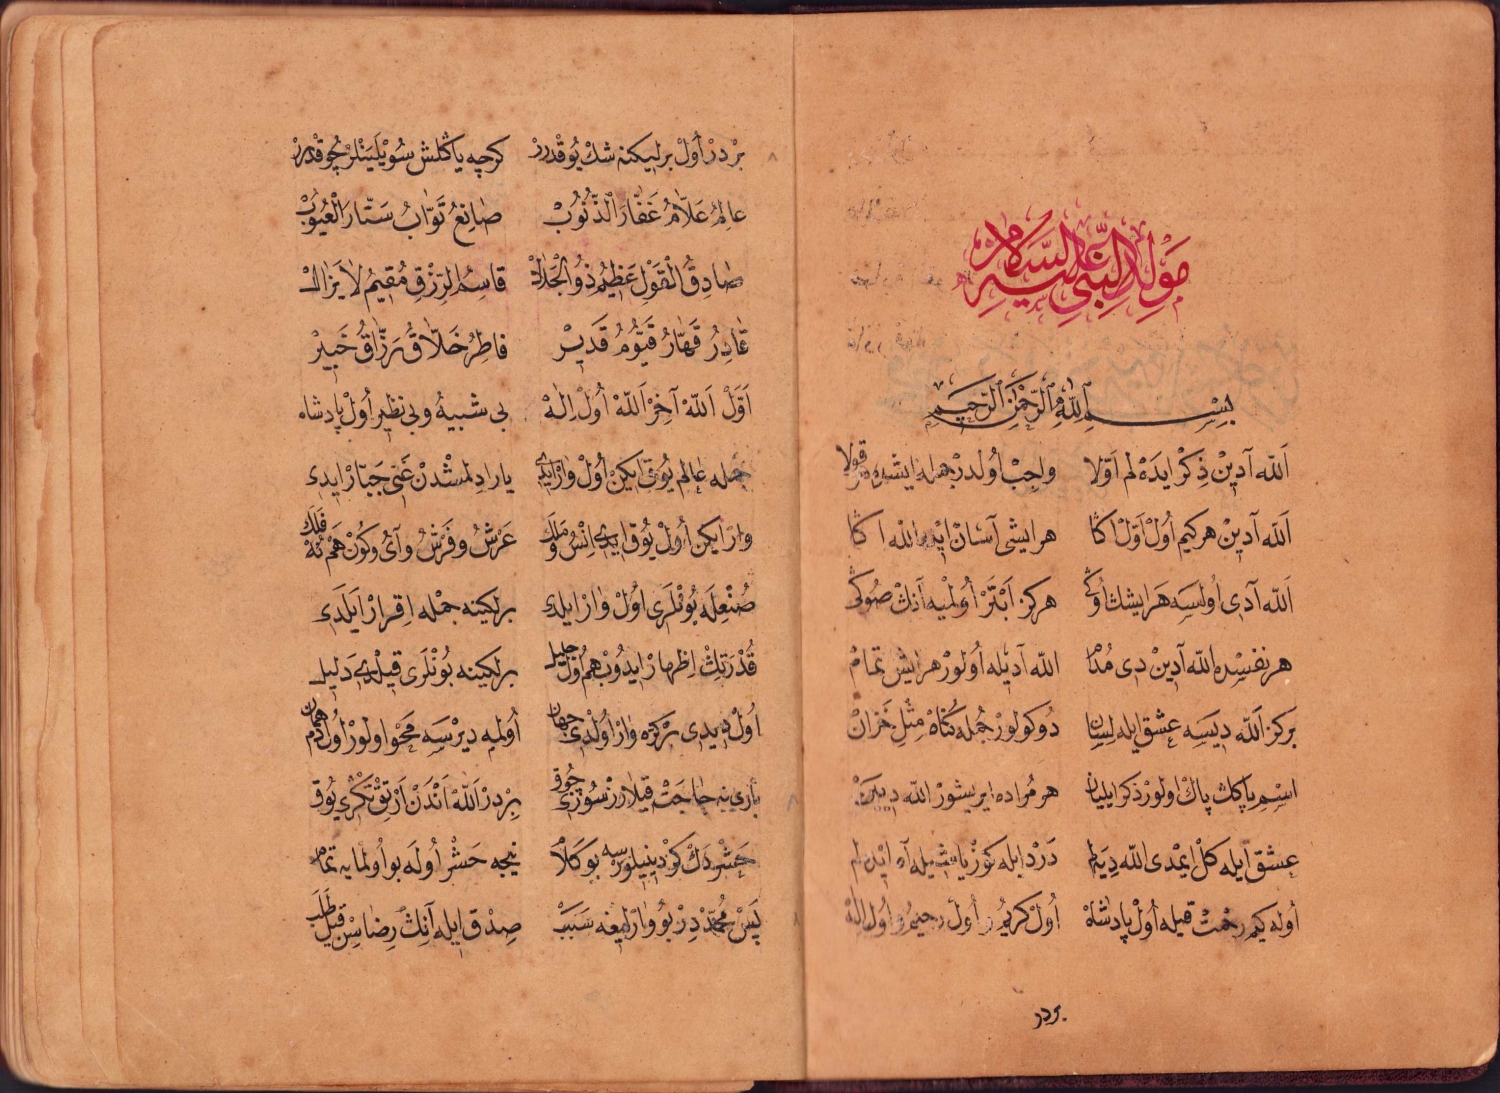 مولد النبى عليه السلام
بِسْمِ اللّٰهِ الرَّحْمٰنِ الرَّحِيمِ
اَللّه آدِيْن ذِكْر ايدَه لم اَوّلا واجِبْ اُولدر جمله ايشده هر قولا
اَللّه آدِيْن هركيم اُولْ اَوّلْ اكا هر ايشى آسان ايده الله اكا
اَللّه آدى اُولسه هر ايشك اُوكى هركز اَبْتَرْ اُولميه آنك صُوكى
هر نفسده الله آدِيْن دى مُدام الله آديله اُولور هر ايش تمام
بركز اَللّه ديسه عشق ايله لسان دوكولور جُمله كُناه مِثْلِ خَزان
اسمِ پاكن پاك اولور ذكر ايليان هر مُراده ايريشور الله ديين
عشق ايله كل ايمدى الله ديَه لم دَرْد ايله كوز ياشيله آه ايده لم
اُوله كيم رحمت قيله اُول پادشاه اُول كريم و اُول رحيم و اُول اله
بردر
بِرْدِرْ اُولْ بِرليكنه شكْ يُوقْدرر كرچه ياڭلش سُويْليَنْلر چوقدرر
عالِمُ عَلّامُ غَفّارَ الذُّنُوبْ صٰانِعُ تَوّابُ سَتّارَ الْعُيُوبْ
صٰادِقُ الْقَوْلِ عَظِيمُ ذُو الْجَلالْ قاسِمُ الرِّزْقِ مُقِيمُ لا يَزالْ
قٰادِرُ قَهّارُ قَيُّومُ قَدِيرْ فاطِرُ خَلّاقُ رَزّاقُ خَبِيرْ
اَوّلْ اَللّهْ آخِرْ اَللّهْ اُولْ اِلهْ بى شبيهُ و بى نظير اُولْ پادشاه
جمله عالم يُوق ايكن اُولْ وار ايدى ياراديلمشدنْ غنى جَبّار ايدى
وار ايكن اُول يُوق ايدى اِنْسُ و مَلَكْ عَرْشُ و فَرْشُ و آىُ و كُونْ هَمْ نُه فلك
صُنْعِلَه بُونْلَرى اُولْ وار ايلدى برلكينه جمْله اِقرارْ ايلَدى
قُدْرَتِنْ اِظهارْ ايدُوبْ هم اُول جليل برلكينه بُونْلَرى قيلدى دَليل
اُولْ ديدى بركزه وارْ اُولْدى جهان اُولمه ديرْسَه محو اولور اُول دم همان
بارى نه حاجَتْ قيلارز سُوزى چُوق بِرْدِرْ اَللّهْ اَنْدَنْ آرْتقْ تَكْرى يُوق
حَشْرَدَك كر دينيلورسه بو كَلامْ نيجه حَشْر اُوله بو اُولمايه تمام
پَسْ مُحَمَّدْ دِرْ بُو وارلغه سَبَبْ صِدْق ايله آنِكْ رِضاسِنْ قيل طَلَبْ